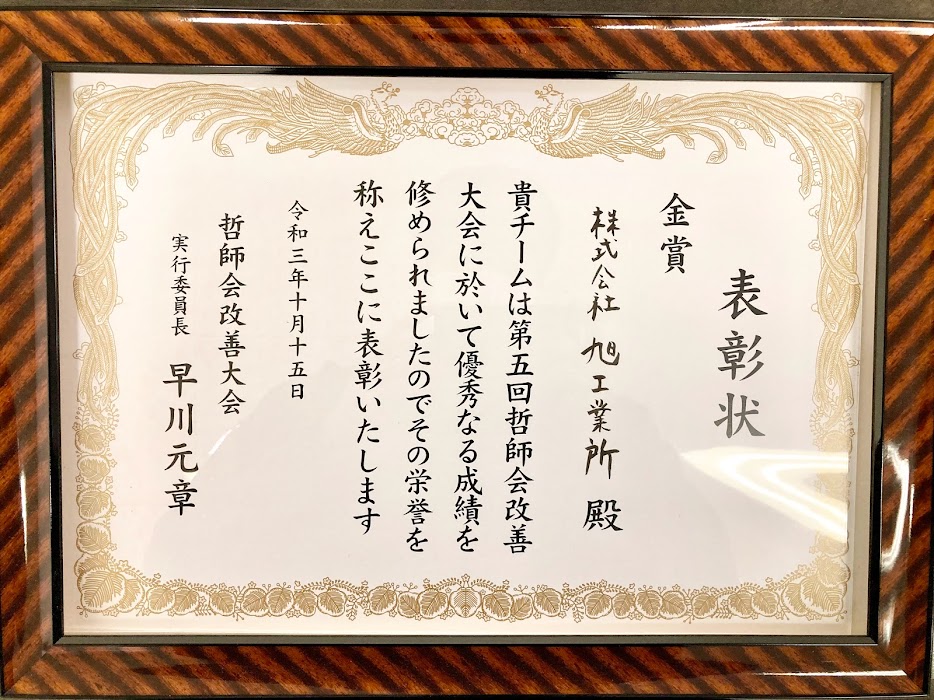 表彰状
金賞
株式会社 旭工業所 殿
貴チームは第五回哲師会改善
大会に於いて優秀なる成績を
修められましたのでその栄誉を
称えここに表彰いたします
令和三年十月十五日
哲師会改善大会
実行委員長 早川元章